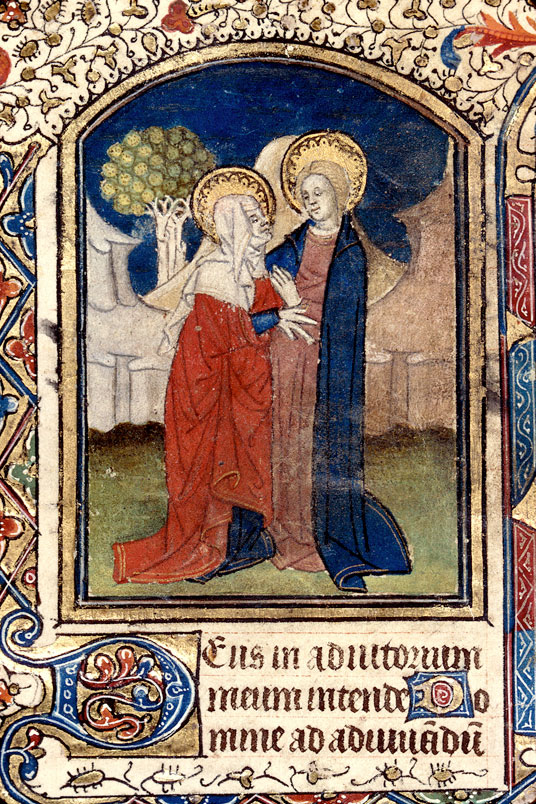 Deus in adiutorium
meum intende Do
mine ad adiuuãdũ